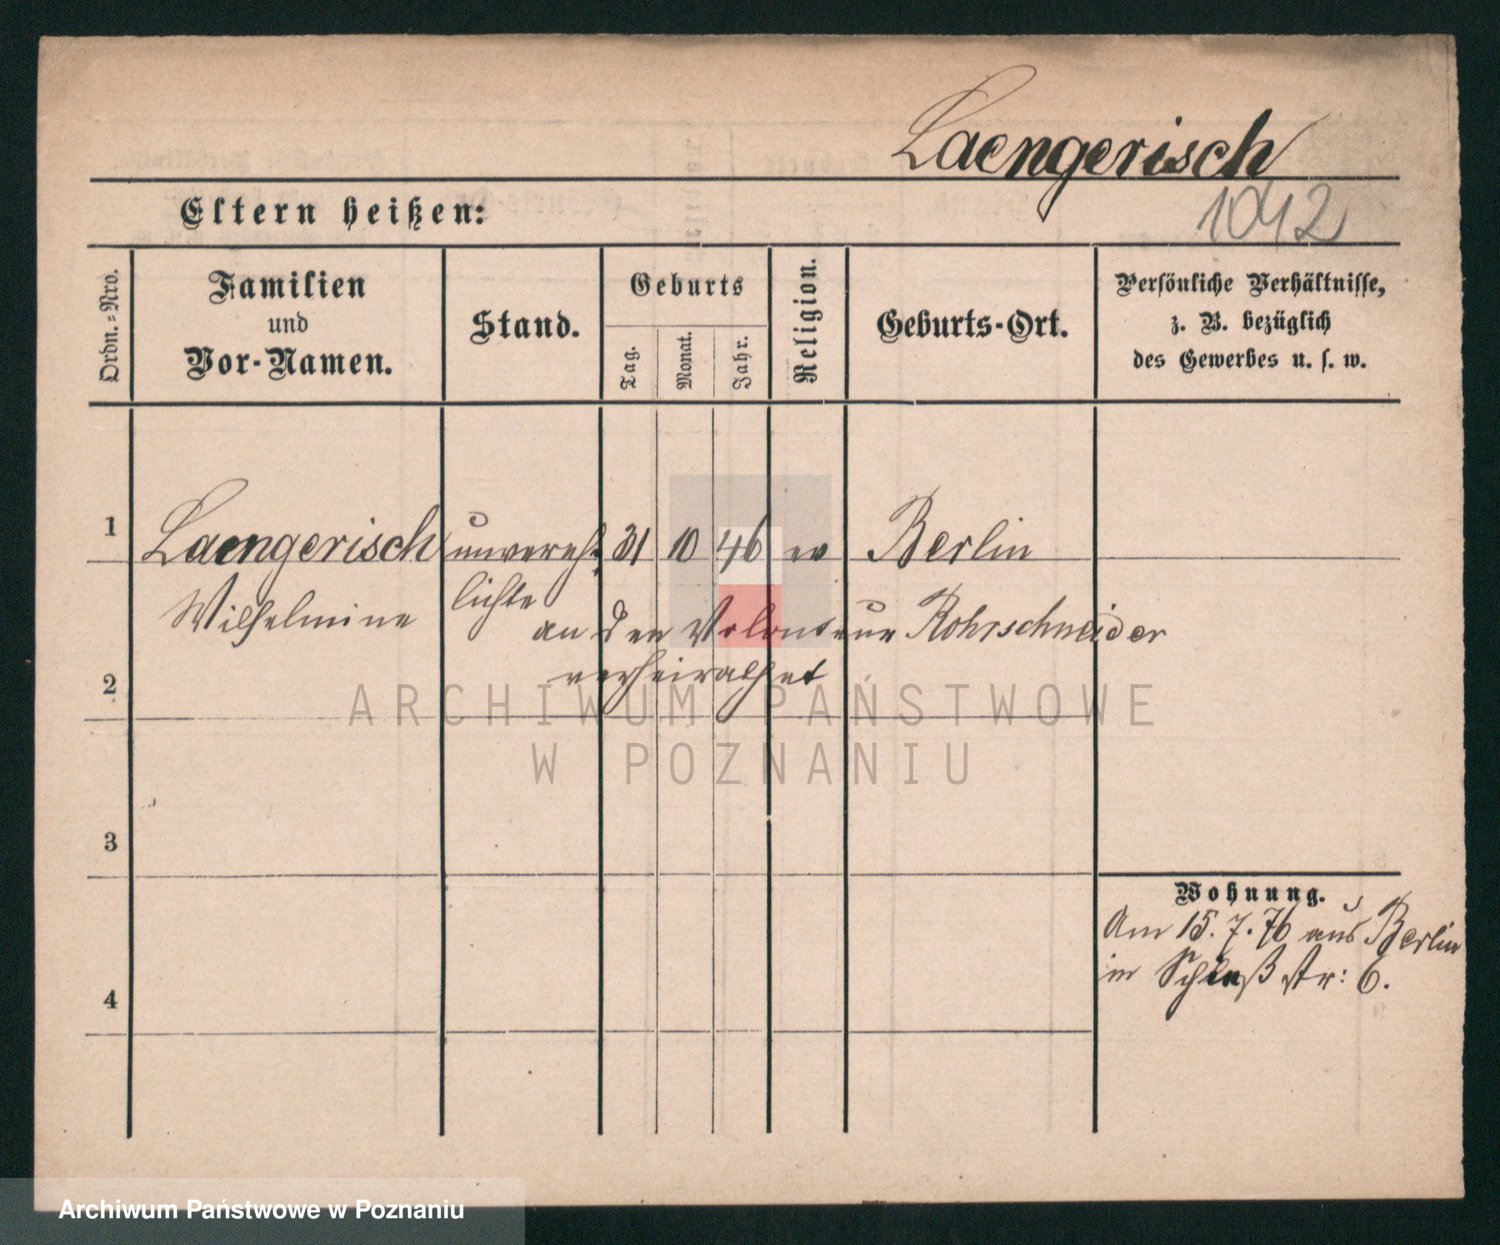 Laengerisch
1042
Eltern heißen:
Ordn.=Nro.
Familien
und
Vor-Namen.
Stand.
Geburts
Tag.
Monat.
Jahr.
Religion.
Geburts-Ort.
Persönliche Verhältnisse,
z. B. bezüglich
des Gewerbes u. s. w.
1 Laengerisch unvereh- 31 10 46 ev Berlin
Wilhelmine lichte
an den Volonteur Rohrschneider
verheirathet
2
3
Wohnung.
Am 15. 7. 76 aus Berlin
in Schloß str: 6.
4
ARCHIWUM PAŃSTWOWE
W POZNANIU
Archiwum Państwowe w Poznaniu